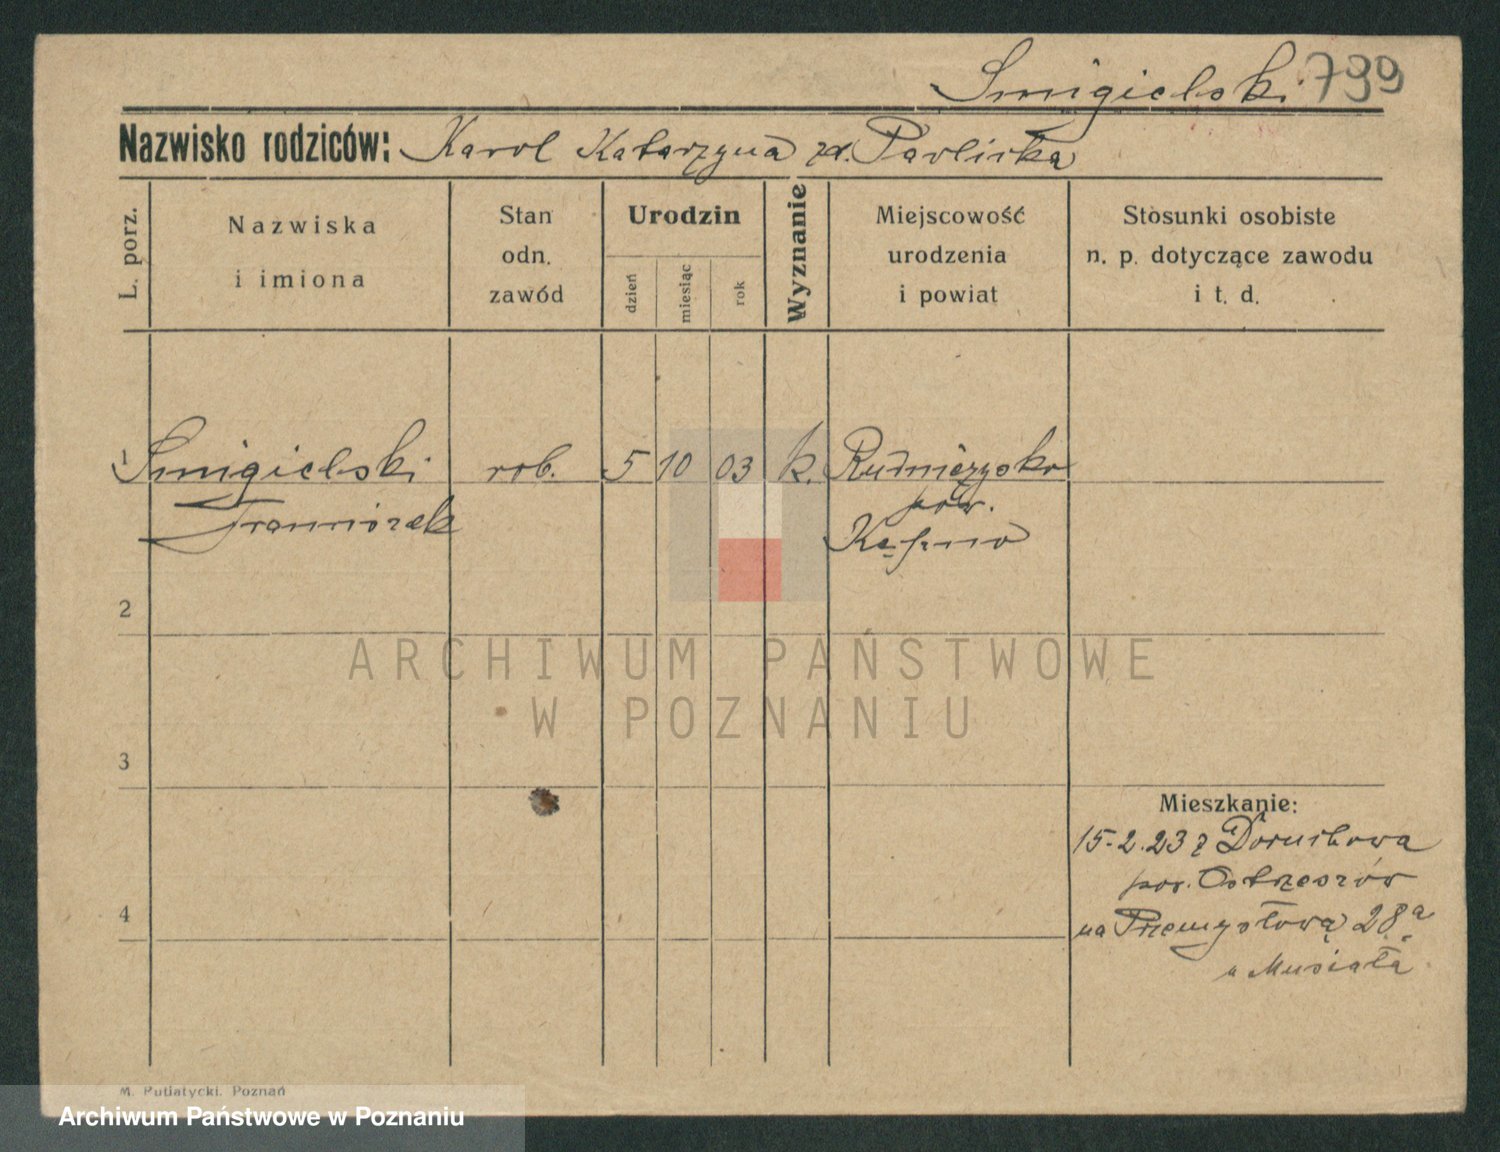 Smigielski 799
Nazwisko rodziców: Karol Katarzyna zd. Pawlicka
L. porz.
Nazwiska
i imiona
Stan
odn.
zawód
Urodzin
dzień
miesiąc
rok
Wyznanie
Miejscowość
urodzenia
i powiat
Stosunki osobiste
n. p. dotyczące zawodu
i t. d.
1 Smigielski rob. 5 10 03 k. Rudniczysko
Franciszek pow.
Kępno
2
ARCHIWUM PAŃSTWOWE
W POZNANIU
3
Mieszkanie:
15.2.23 z Doruchowa
pow. Ostrzeszów
4
na Przemysłową 28a
u Musiała
M. Putiatycki. Poznań
Archiwum Państwowe w Poznaniu